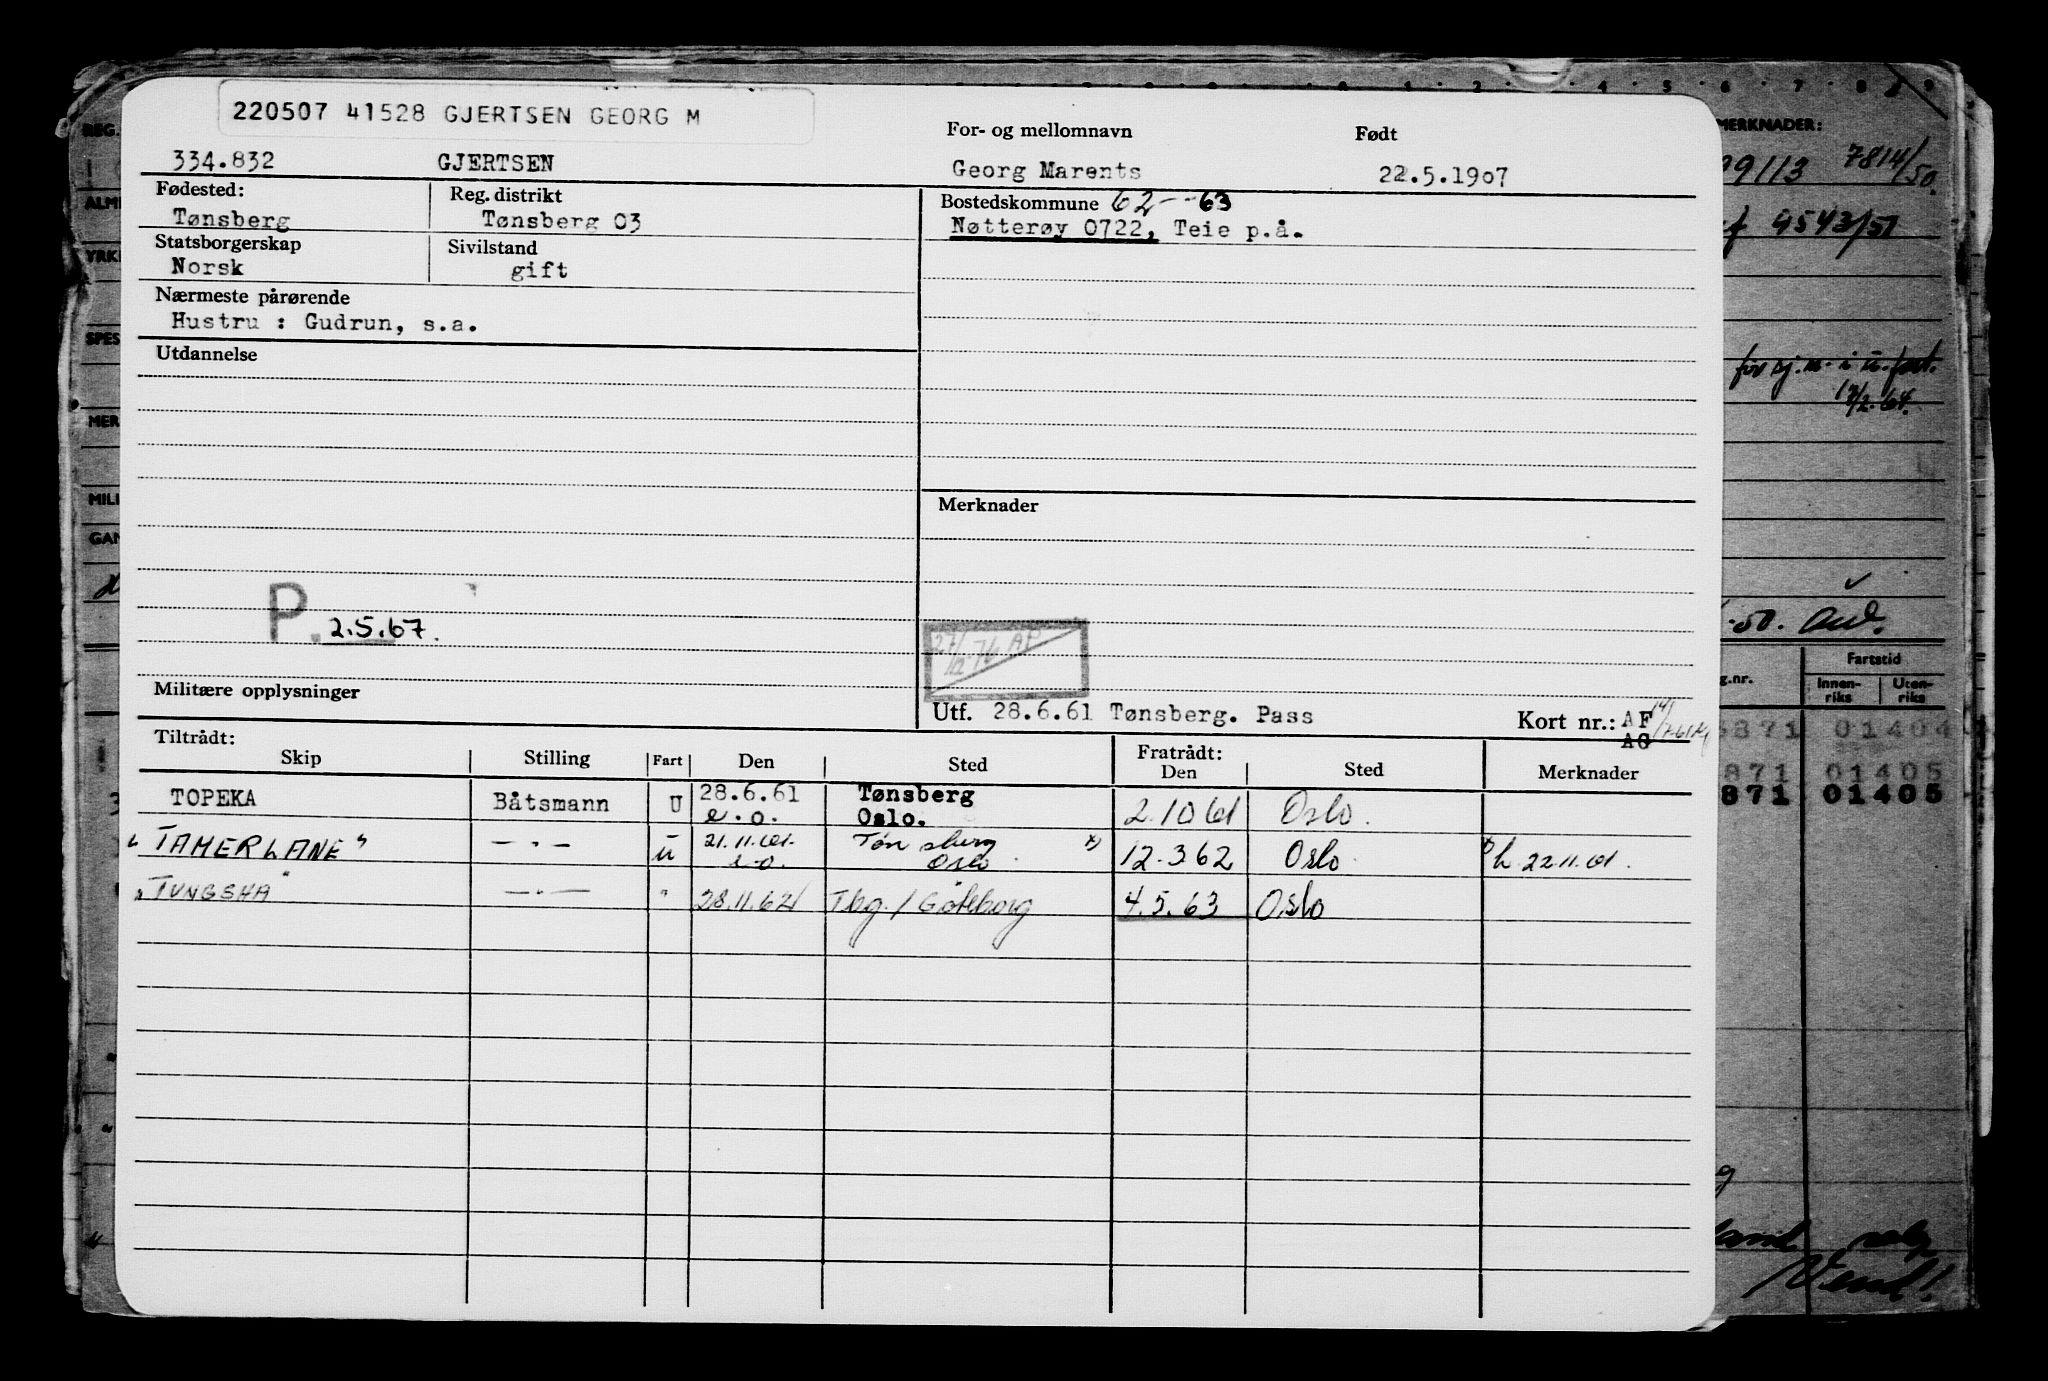 220507 41528 GJERTSEN GEORG M
334.832 GJERTSEN
For- og mellomnavn Født
Georg Marents 22.5.1907
Fødested: Reg. distrikt
Tønsberg Tønsberg 03
Bostedskommune 62--63
Nøtterøy 0722, Teie p.å.
Statsborgerskap Sivilstand
Norsk gift
Nærmeste pårørende
Hustru : Gudrun, s.a.
Utdannelse
Merknader
P. 2.5.67.
27/12.76 AP
Militære opplysninger
Utf. 28.6.61 Tønsberg. Pass Kort nr.: AF
AG
Tiltrådt: Fratrådt:
Skip Stilling Fart Den Sted Den Sted Merknader
TOPEKA Båtsmann U 28.6.61 Tønsberg 2.10 61 Oslo.
e.o. Oslo.
"TAMERLANE" —"— u 21.11.61. Tønsberg x) 12.3 62 Oslo x) h. 22.11.61.
e.o. Oslo
"TUNGSHA" —"— " 28.11.62 Tbg. / Göteborg 4.5.63 Oslo
REG.
MERKNADER:
7814/50.
9543/51
for sj.m. i u. fart.
13/2.64.
SPES
MER
MILI
GAN
.50.
g.nr. Fartstid
Innen-riks Uten-riks
6871 01404
871 01405
871 01405
Vend!